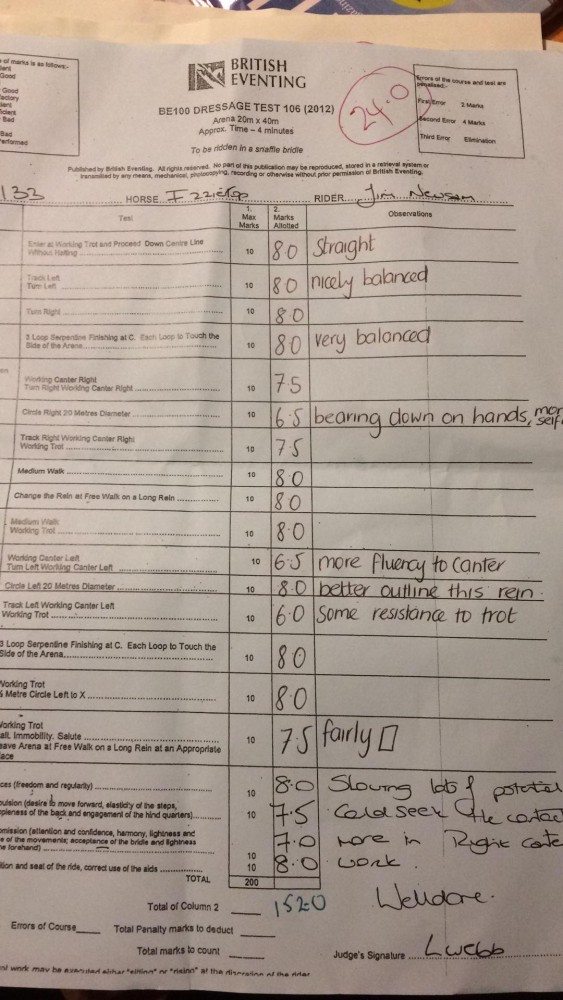 of marks is as follows:-
Good
Good
Bad
Bad
BRITISH
EVENTING
24.0
BE100 DRESSAGE TEST 106 (2012)
Arena 20m x 40m
Approx. Time – 4 minutes
To be ridden in a snaffle bridle
Errors of the course and test are
penalised:-
First Error 2 Marks
Second Error 4 Marks
Third Error Elimination
Published by British Eventing. All rights reserved. No part of this publication may be reproduced, stored in a retrieval system or
transmitted by any means, mechanical, photocopying, recording or otherwise without prior permission of British Eventing.
133 HORSE RIDER Jim Newsam
Test 1. Max Marks 2. Marks Allotted Observations
Enter at Working Trot and Proceed Down Centre Line
Without Halting 10 8.0 Straight
Track Left
Turn Left 10 8.0 nicely balanced
Turn Right 10 8.0
3 Loop Serpentine Finishing at C. Each Loop to Touch the
Side of the Arena 10 8.0 very balanced
Working Canter Right
Turn Right Working Canter Right 10 7.5
Circle Right 20 Metres Diameter 10 6.5 bearing down on hands, more self
Track Right Working Canter Right
Working Trot 10 7.5
Medium Walk 10 8.0
Change the Rein at Free Walk on a Long Rein 10 8.0
Medium Walk
Working Trot 10 8.0
Working Canter Left
Turn Left Working Canter Left 10 6.5 more fluency to canter
Circle Left 20 Metres Diameter 10 8.0 better outline this rein.
Track Left Working Canter Left
Working Trot 10 6.0 Some resistance to trot
3 Loop Serpentine Finishing at C. Each Loop to Touch the
Side of the Arena 10 8.0
Working Trot
Metre Circle Left to X 10 8.0
Working Trot
Halt. Immobility. Salute
Leave Arena at Free Walk on a Long Rein at an Appropriate
Place 10 7.5 fairly □
(freedom and regularity) 10 8.0 Showing lots of potential
(desire to move forward, elasticity of the steps,
suppleness of the back and engagement of the hind quarters) 10 7.5 Could seek the contact
(attention and confidence, harmony, lightness and
of the movements; acceptance of the bridle and lightness
forehand) 10 7.0 more in Right
and seat of the ride, correct use of the aids 10 8.0 work.
TOTAL 200
Total of Column 2 152.0 Welldone.
Errors of Course Total Penalty marks to deduct
Total marks to count Judge's Signature L Webb
work may be executed either "sitting" or "rising" at the discretion of the rider